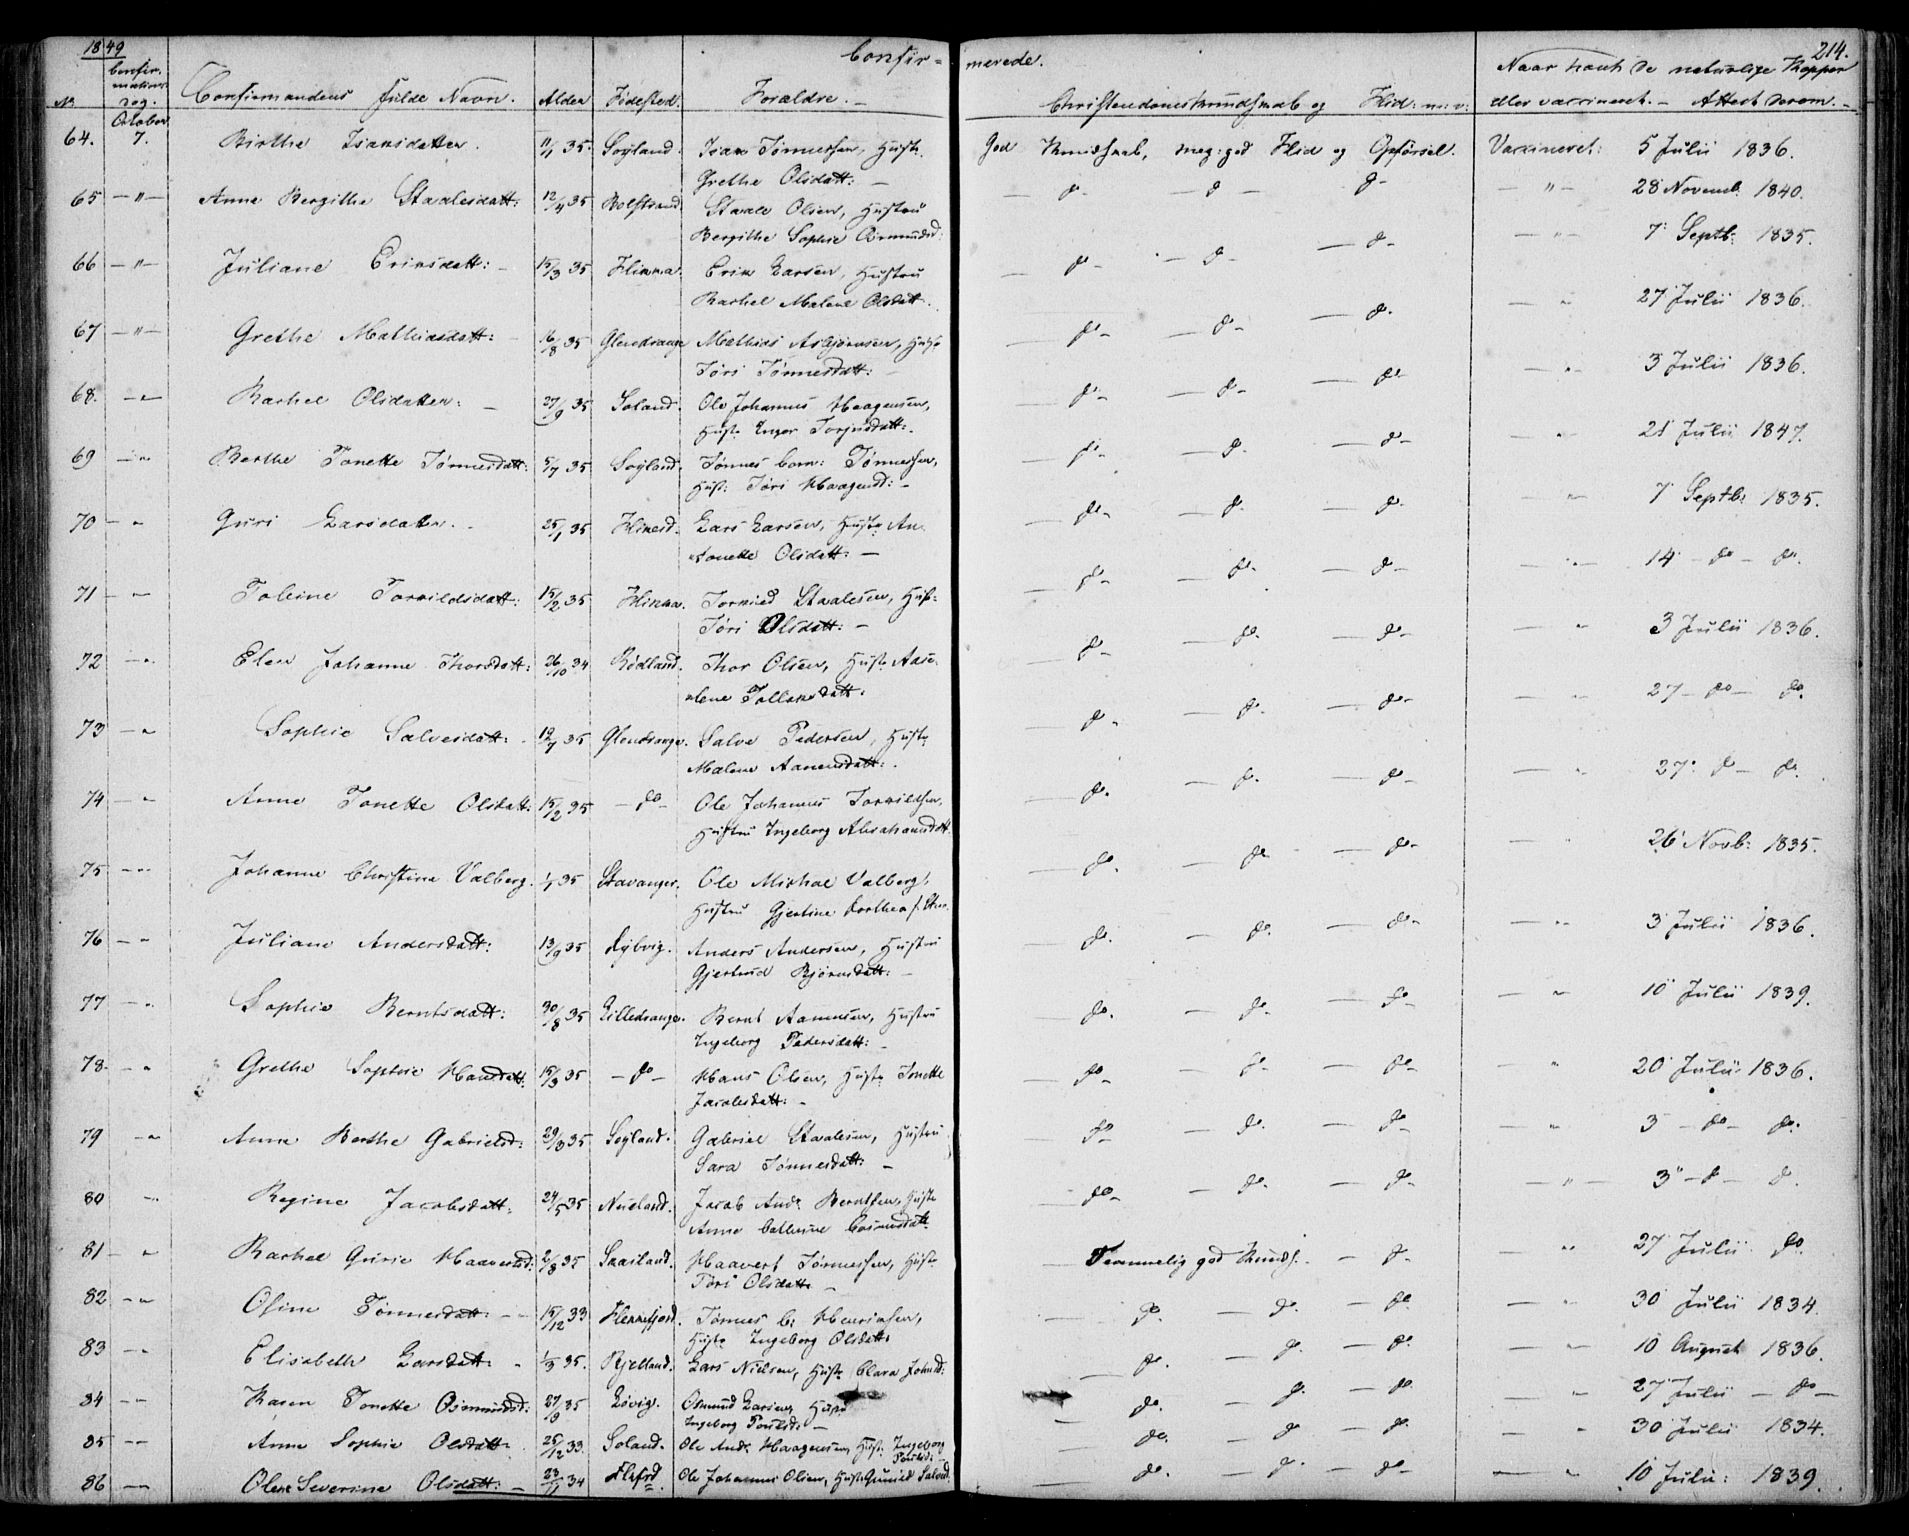 1849 Confir- merede. 214.
No Confirmations Dag. Confirmandens fulde Navn. Alder Fødested. Forældre. Christendomskundskab og Flid Naar havt de naturlige Kopper eller vaccineret. - Attest derom.
October
64. 7. Birthe Isaksdatter. 11/1 35. Søyland. Isak Tønnessen, Hustr. God Kundskab, meg: god Flid og Opførsel. Vaccineret: 5 Julii 1836.
Grethe Olsdatt: -
65 -"- Anne Bergithe Staalesdatt: 12/4 35 Staale Olsen, Hustru - do - do - do - -"- 28 Novemb. 1840.
Bergithe Sophie
66 -"- Juliane Eriksdatt: - 15/3 35 Erik Larsen, Hustru - do - do - do - -"- 7 Septb: 1835.
Rachel Malene Olsdatt.
67 -"- Grethe Mathiasdatt: 16/8 35 Glendrange Mathias Asbjørnsen, Hust - do - do - do. - " 27 Julii 1836.
Tøri Tønnesdatt: -
68. -"- Rachel Olsdatter. - 27/9 35 Soland. Ole Johannes Haagensen, - do - do - do - " 3 Julii 1836.
Hust: Inger Torjusdatt: -
69 -"- Berthe Tonette Tønnesdatt: 5/7 35 Søyland. Tønnes Corn: Tønnessen, - do - do. - do - " 21 Julii 1847.
Hust: Tøri Haagensd: -
70 - " Guri Larsdatter. 25/1 35 Lars Larsen, Hustr: An- - do - do. - do. - " 7 Septb: 1835.
tonette Olsdatt: -
71 - " Tobine Torkildsdatt: 15/2 35 Torkild Staalesen, Hust: - do - do. - do - " 14 - do - do.
Tøri Olsdatt: -
72 - " Elen Johanne Thorsdatt: 26/10 34 Rødland. Thor Olsen, Hustr Aase- - do - do. - do - " 3 Julii 1836.
lene Tollaksdatt:
73 - " Sophie Salvesdatt: 19/7 35 Glendrange. Salve Pedersen, Hustr - do - do. - do - " 27 - do - do.
Malene Aanensdatt: -
74 - " Anne Tonette Olsdatt: 15/2 35 - do - Ole Johannes Torkildsen, - do. - do. - do - " 27 do - do.
Hustru Ingeborg Abrahamsdatt.
75 -"- Johanne Christine Valberg. 1/7 35 Stavanger. Ole Michal Valberg, - do. - do - do - " 26 Novb: 1835.
Hustru Gjertine Dorthea
76 - " Juliane Andersdatt: 13/9 35 Anders Andersen, Hustru - do. - do. - do - " 3 Julii 1836.
Gjertrud Bjørnsdatt: -
77 - " Sophie Berntsdatt: 30/8 35 Lilledrange. Bernt Aanensen, Hustru - do. - do. - do - " 10 Julii 1839.
Ingeborg Pedersdatt: -
78. - " Grethe Sophie Hansdatt: 15/3 35 - do - Hans Olsen, Hustr Tonette - do - do - do - " 20 Julii 1836.
Jacobsdatt: -
79 - " Anne Berthe Gabrielsd: 29/3 35 Søyland. Gabriel Staalesen, Hustru - do - do. - do - " 3 - do - do.
Sara Tønnesdatt: -
80 " Regine Jacobsdatt: 24/5 35 Nueland. Jacob And: Berntsen, Hustr - do - do. - do - -"- 3 - do - do.
Anne Cathrine
81 - " Rachel Gurie Haavertsd: 2/8 35 Haavert Tønnessen, Hustr Temmelig god Kundsk. - do - " 27 Julii do.
Tøri Olsdatt -
82 -"- Oline Tønnesdatt: - 15/12 33 Flekkefjord. Tønnes C: Henriksen, do. - do. - do. - " 30 Julii 1834.
Hustr Ingeborg Olsdatt:
83 - " Elisabeth Larsdatt: 1/3 35. Lars Nielsen, Hustr Clara Johnsd: - do. - do. - do. - " 10 August 1836.
84 -"- Karen Tonette Osmundsd: 27/9 35 Løvig. Osmund Larsen, Hustr - do. - do. - do. " 27 Julii - do -
Ingeborg Poulsd: -
85 -"- Anne Sophie Olsdatt: 25/12 33. Soland. Ole And: Haagensen, Hust: Ingeborg - do. - do - do. - " 30 Julii 1834.
Poulsd: -
86 -"- Olene Severine Olsdatt: - 23/11 34 Flkfrd Ole Johannes Olsen, Hust: Gunild Salvesd: - do. - do - do - - " 10 Julii: 1839.